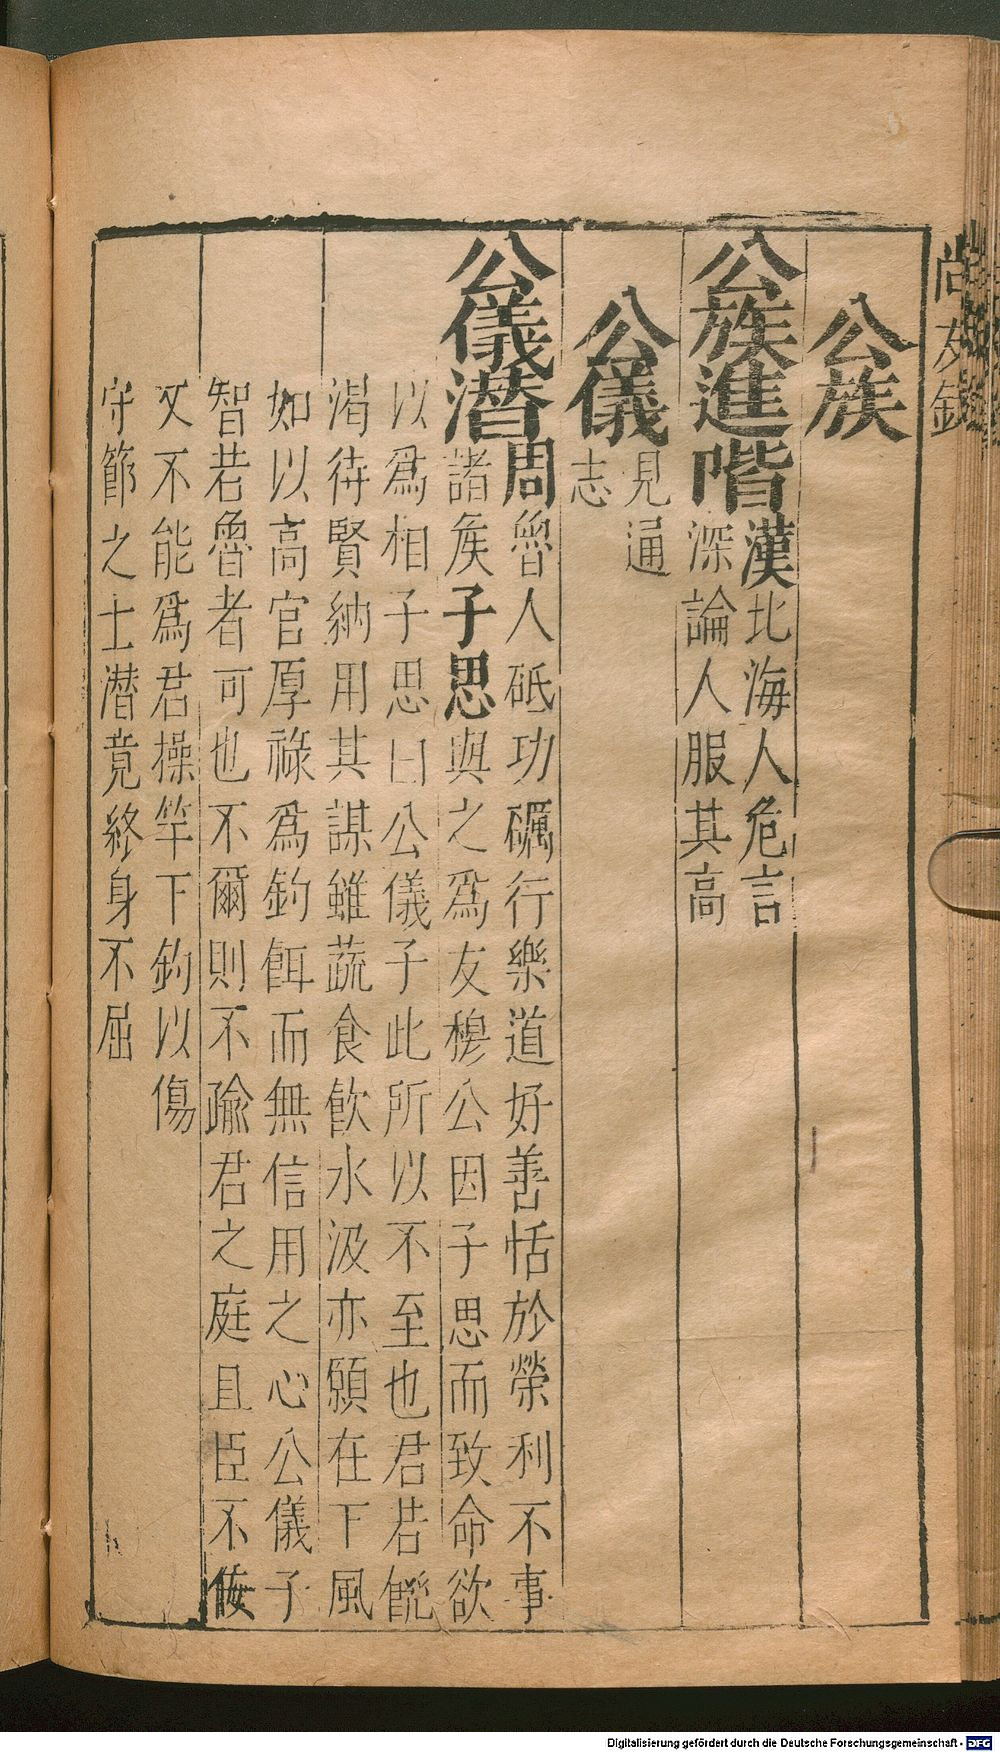 尚友錄
公族
公族進階漢北海人危言
深論人服其高
公儀見通
志
公儀潛周魯人砥功礪行樂道好善恬於榮利不事
諸矦子思與之爲友穆公因子思而致命欲
以爲相子思曰公儀子此所以不至也君若飢
渴待賢納用其謀雖蔬食飲水汲亦願在下風
如以高官厚祿爲釣餌而無信用之心公儀子
智若魯者可也不爾則不踰君之庭且臣不佞
又不能爲君操竿下釣以傷
守節之士潛竟終身不屈
Digitalisierung gefördert durch die Deutsche Forschungsgemeinschaft - DFG